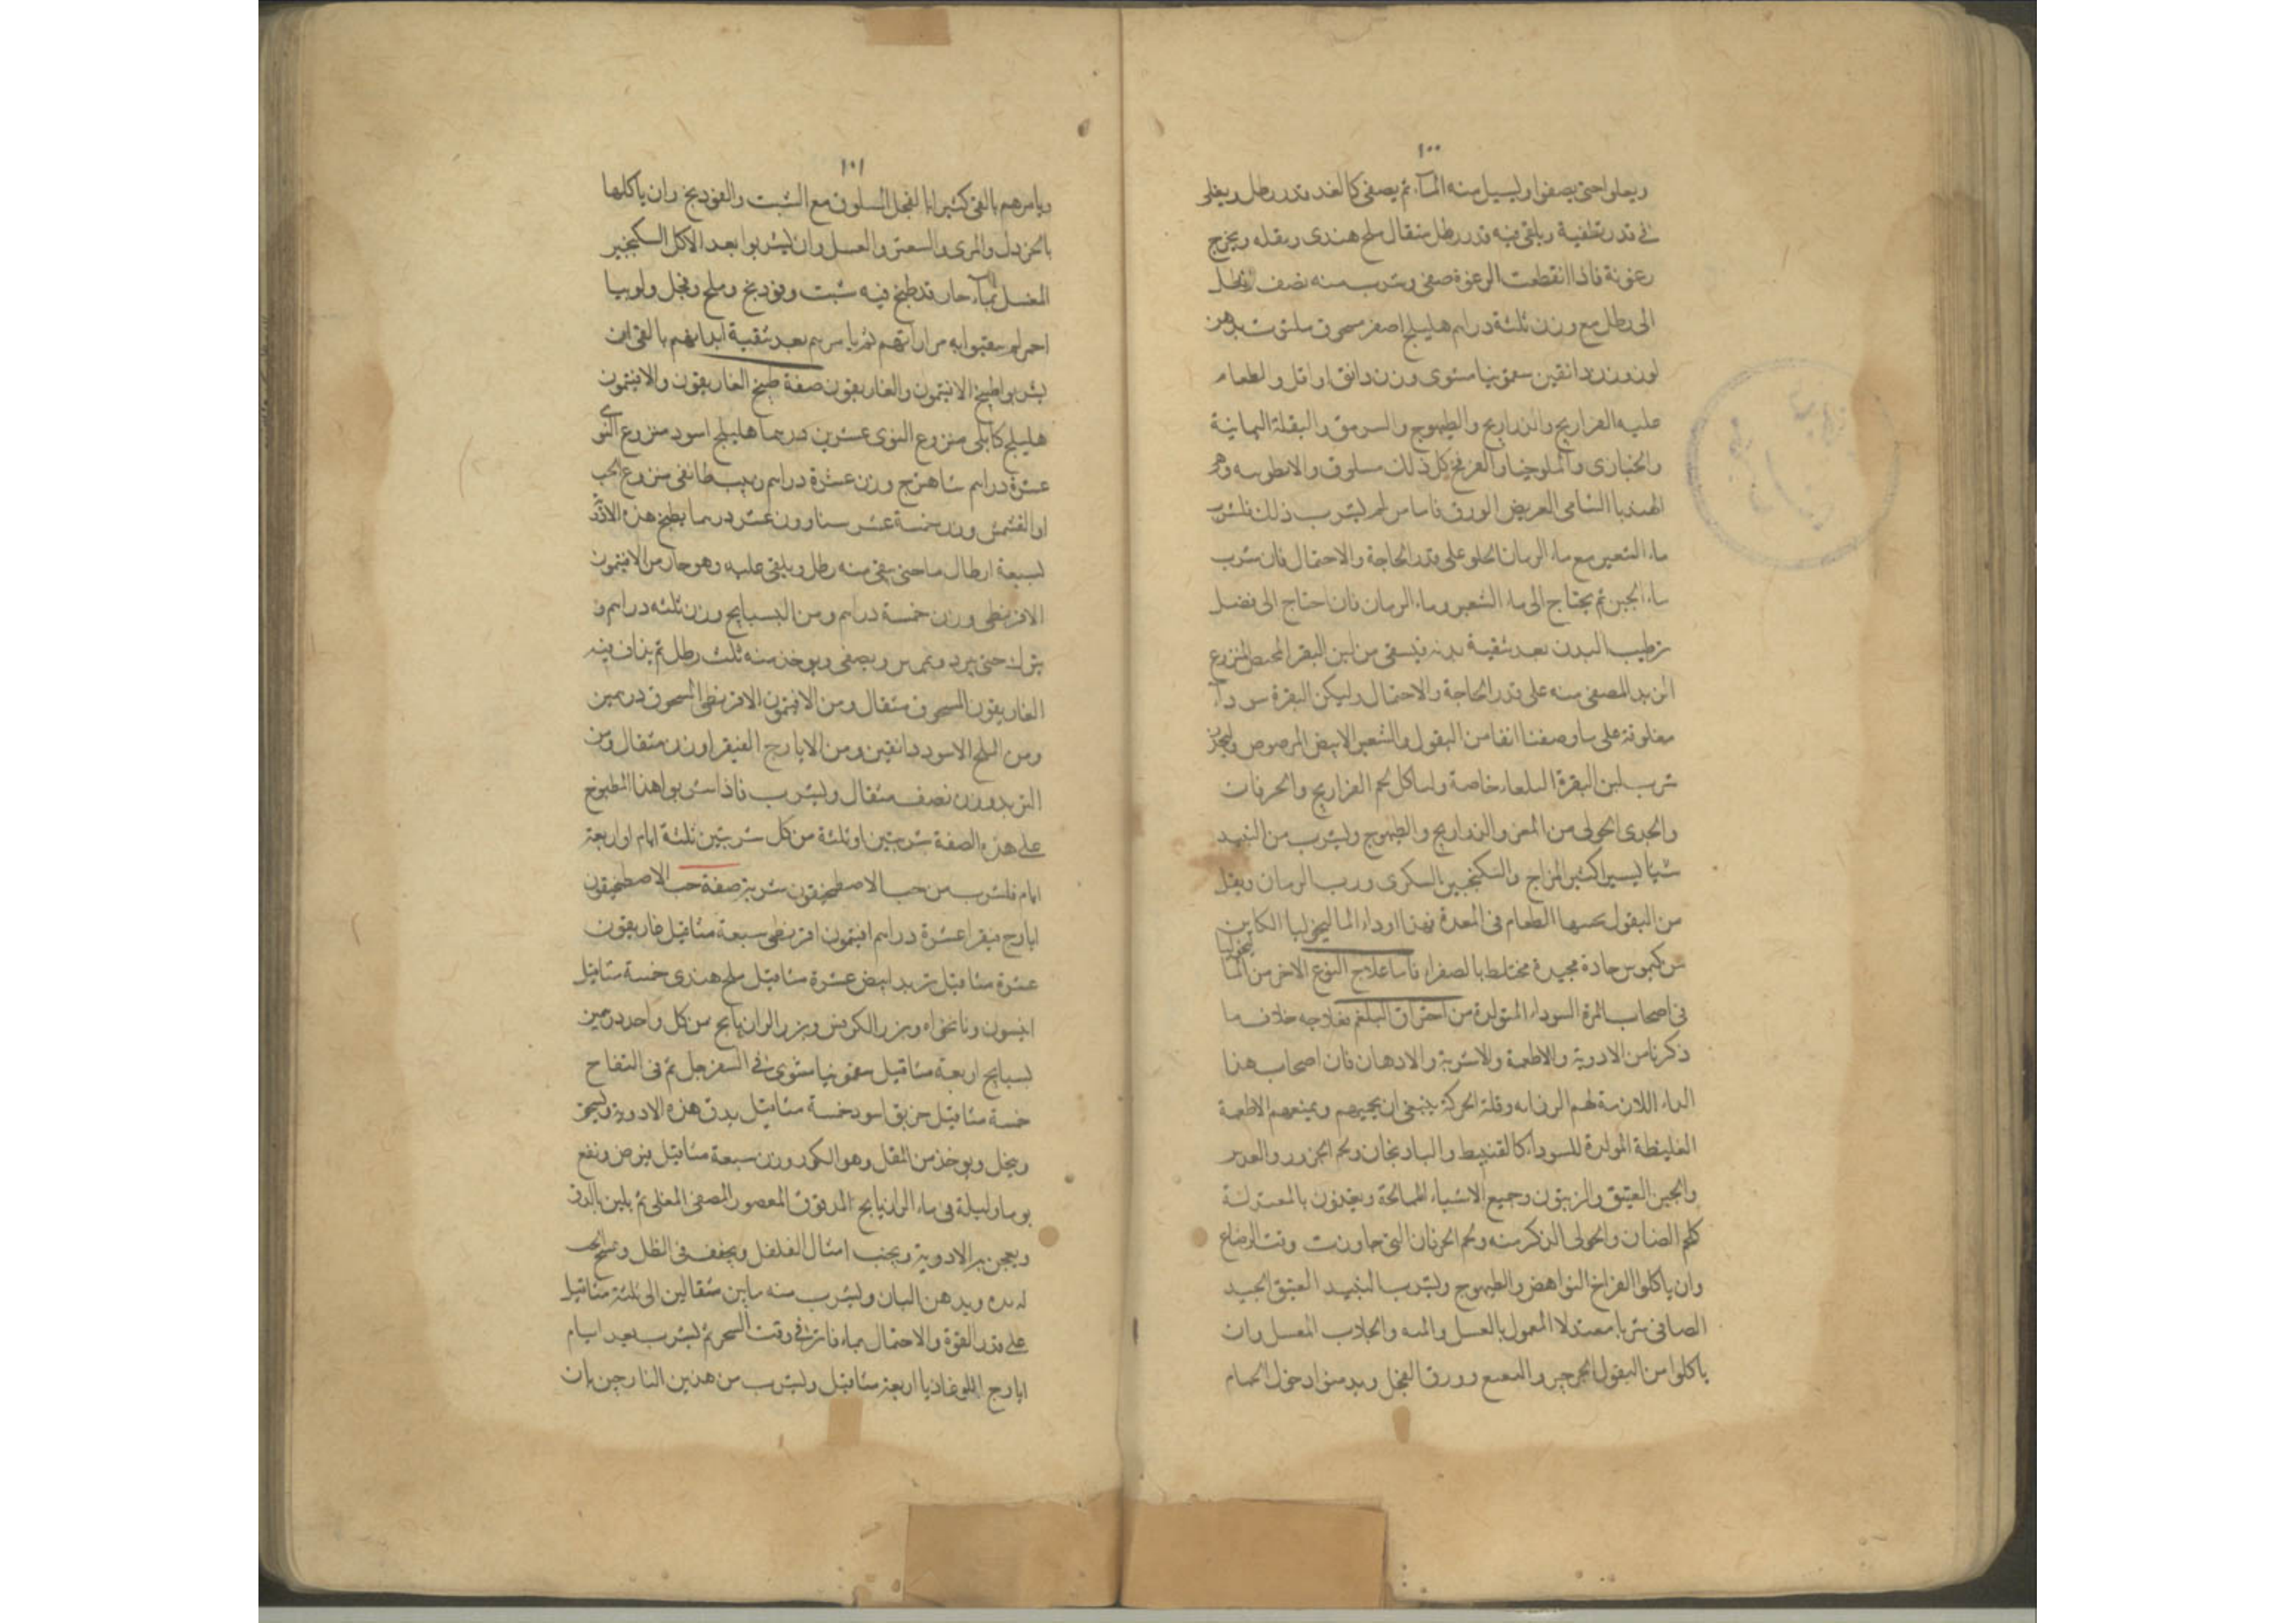 ١٠٠
ويعلوا حتى يصفوا ويسيل منه الماء ثم يصفى كالغد قدر رطل ويغلى
فى قدر نظيفة ويلقى فيه قدر رطل مثقال ملح هندى وبقله ويخرج
رغوته فاذا انقطعت الرغوة صفى وشرب منه نصف رطل
الى رطل مع وزن ثلثة دراهم هليلج اصفر مسحوق ملتوت بدهن
لوز ووزن دانقين سقمونيا مشوى وزن دانق او اقل والطعام
عليه الفراريج والدراريج والطيهوج والسرمق والبقلة اليمانية
والخبازى والملوخيا والقرع كل ذلك مسلوق والانطوبيه وهو
الهندبا الشامى العريض الورق فاما من لم يشرب ذلك فليشرب
ماء الشعير مع ماء الرمان الحلو على قدر الحاجة والاحتمال فان شرب
ماء الجبن ثم يحتاج الى ماء الشعير وماء الرمان فان احتاج الى فضل
ترطيب البدن بعد تنقية بدنه فيسقى من لبن البقر المخيض المنزوع
الزبد المصفى منه على قدر الحاجة والاحتمال وليكن البقرة سوداء
معلوفة على ما وصفنا انفا من البقول والشعير الابيض المرضوض وليحذر
شرب لبن البقرة البلقاء خاصة ولياكل لحم الفراريج والخرفان
والجدى الحولى من المعز والدراريج والطيهوج وليشرب من النبيذ
شيا يسيرا كثير المزاج والسكنجبين السكرى ورب الرمان ويقل
من البقول بحسبها الطعام فى المعدة فهذا دواء الماليخوليا الكاين
من كيموس حادة مختلط بالصفراء فاما علاج النوع الاخر من الما ليخوليا
فى اصحاب المرة السوداء المتولدة من احتراق البلغم فعلاجه خلاف ما
ذكرنا من الادوية والاطعمة والاشربة والادهان فان اصحاب هذا
الداء اللازمة لهم الرفاهه وقلة الحركة ينبغى ان يحميهم ويمنعهم الاطعمة
الغليظة المولدة للسوداء كالقنبيط والباذنجان ولحم الجزور والعدس
والجبن العتيق والزيتون وجميع الاشياء المالحة ويغذون بالمعتدلة
كلحم الضان والحولى الذكر منه ولحم الخرفان التى جاوزت وقت الرضاع
وان ياكلوا الفراخ النواهض والطيهوج وليشرب النبيذ العتيق الجيد
الصافى شربا معتدلا المعمول بالعسل والجلاب المعسل وان
ياكلوا من البقول الجرجير والنعنع وورق الفجل ويدمنوا دخول الحمام
١٠١
ويامرهم بالقئ كثيرا بالفجل المسلوق مع الشبت والفودنج وان ياكلها
بالخردل والمرى والسعتر والعسل وان يشربوا بعد الاكل السكنجبين
المعسل بماء حار قد طبخ فيه شبت وفودنج وملح وفجل ولوبيا
احمر ثم يامرهم بعد تنقية ابدانهم بالقئ ان
يشربوا طبيخ الافتيمون والغاريقون صفة طبيخ الغاريقون والافتيمون
هليلج كابلى منزوع النوى عشرين درهما هليلج اسود منزوع النوى
عشرة دراهم شاهترج وزن عشرة دراهم زبيب طائفى منزوع الحب
او القشمش وزن خمسة عشر سنا وزن عشر درهما يطبخ هذه الادوية
بسبعة ارطال ما حتى يبقى منه رطل ويلقى عليه وهو حار من الافتيمون
الاقريطى وزن خمسة دراهم ومن البسبايج وزن ثلثه دراهم و
يترك حتى يبرد ويمرس ويصفى ويوخذ منه ثلث رطل ثم يداف فيه
الغاريقون المسحوق مثقال ومن الافتيمون الاقريطى المسحوق درهمين
ومن الملح الاسود دانقين ومن الايارج الفيقرا وزن مثقال ومن
التربد وزن نصف مثقال وليشرب فاذا شربوا هذا المطبوخ
على هذه الصفة شربتين او ثلثة من كل شربتين ثلثة ايام او اربعة
ايام فليشرب من حب الاصطمخيقون شربة صفة حب الاصطمخيقون
ايارج فيقرا عشرة دراهم افتيمون اقريطى سبعة مثاقيل غاريقون
عشرة مثاقيل تربد ابيض عشرة مثاقيل ملح هندى خمسة مثاقيل
انيسون ونانخواه وبزر الكرفس وبزر الرازيانج من كل واحد درهمين
بسبايج اربعة مثاقيل سقمونيا مشوى فى السفرجل ثم فى التفاح
خمسة مثاقيل خربق اسود خمسة مثاقيل يدق هذه الادوية ويسحق
وينخل ويوخذ من المقل وهو الكور وزن سبعة مثاقيل فيرض وينقع
يوما وليلة فى ماء الرازيانج المدقوق المعصور المصفى المغلى ثم يلين بالدق
ويعجن به الادوية ويحبب امثال الفلفل ويجفف فى الظل ويمسح
يده ويدهن البان وليشرب منه ما بين مثقالين الى ثلثة مثاقيل
على قدر القوة والاحتمال بماء فاتر فى وقت السحر ثم ليشرب بعد ايام
ايارج اللوغاذيا اربعة مثاقيل وليشرب من هذين